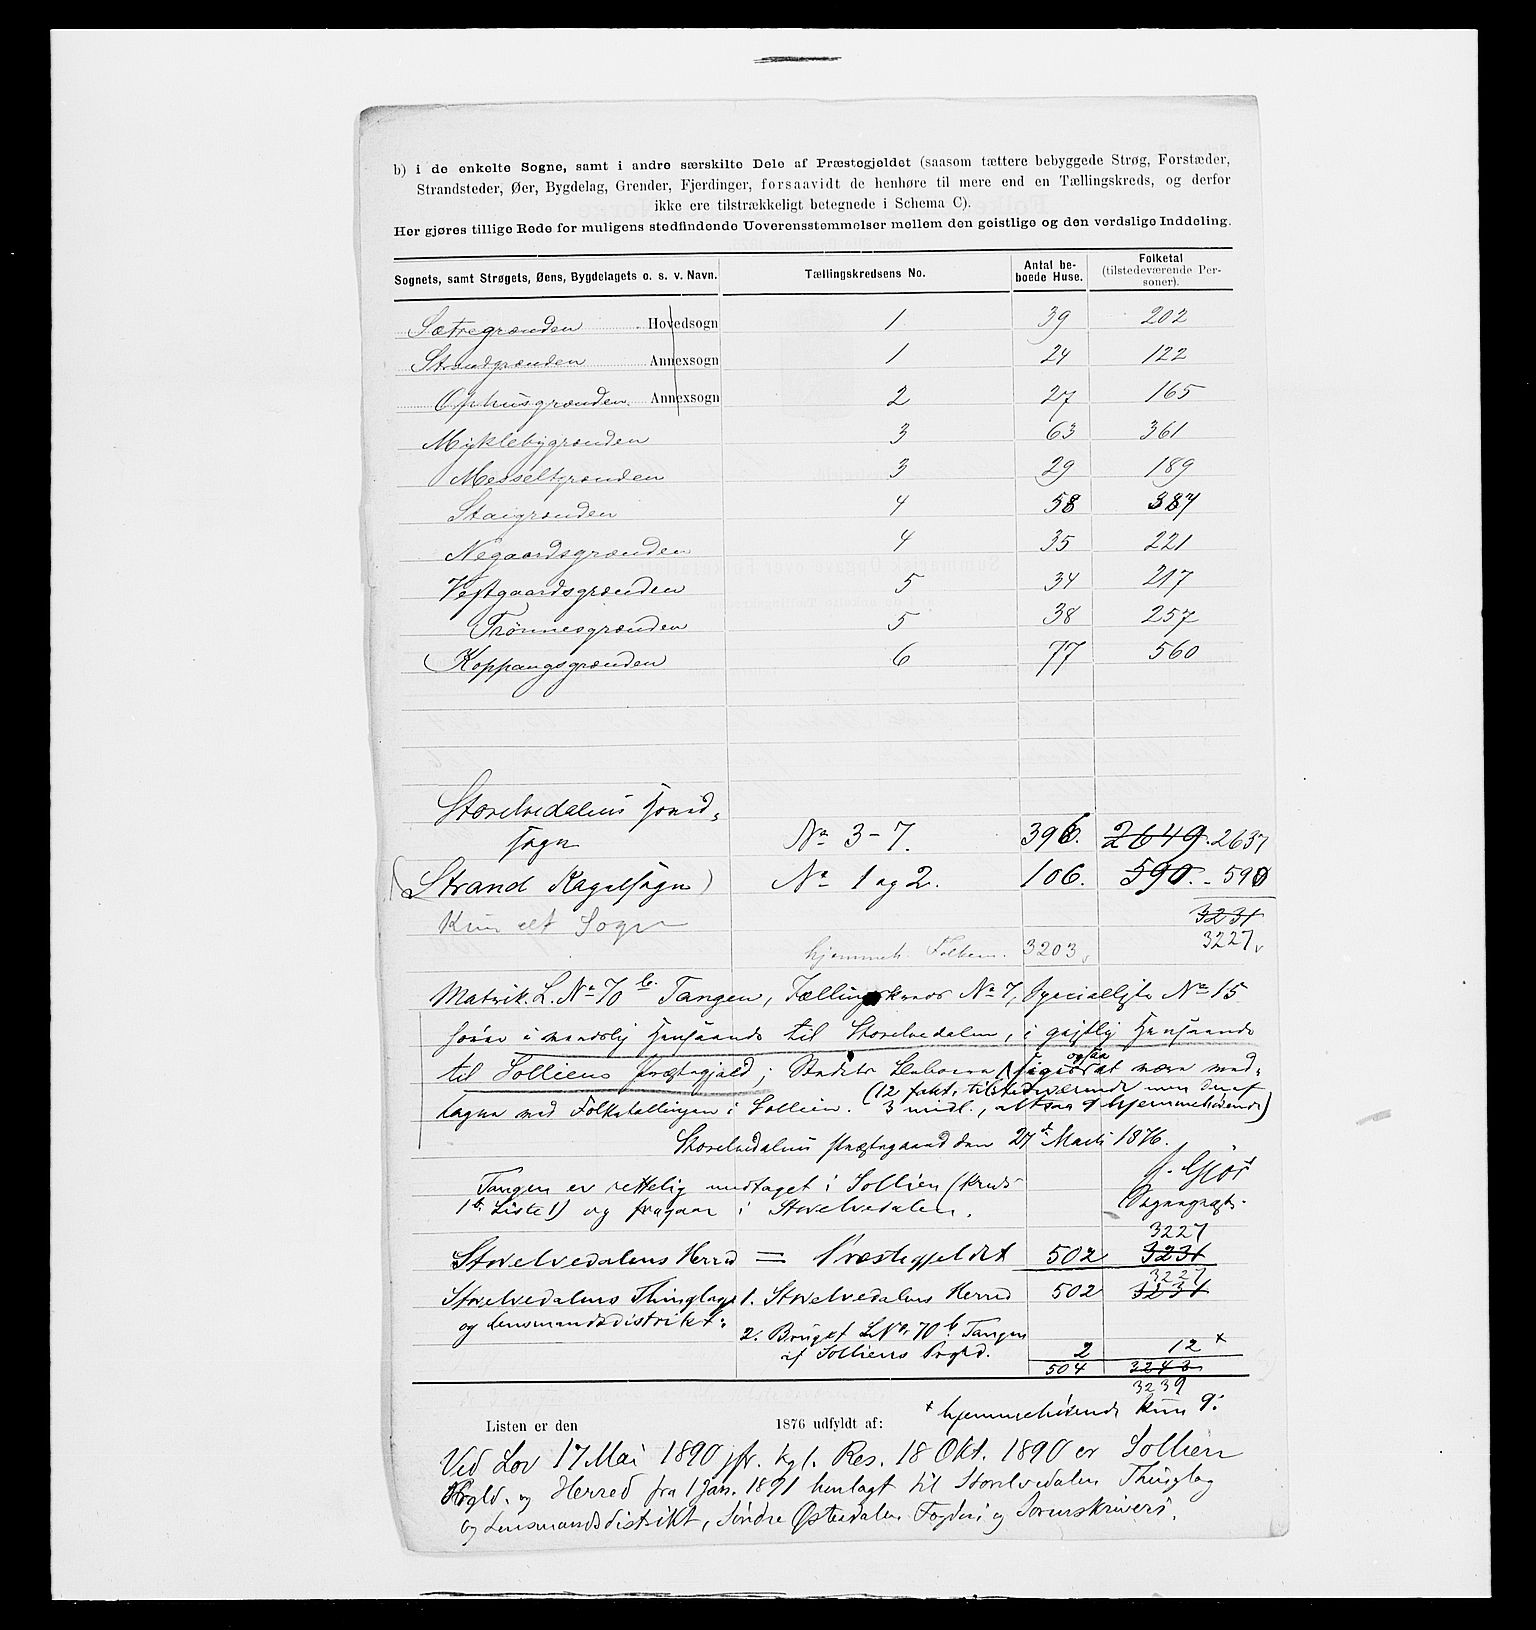 b) i de enkelte Sogne, samt i andre særskilte Dele af Præstegjeldet (saasom tættere bebyggede Strøg, Forstæder,
Strandsteder, Øer, Bygdelag, Grender, Fjerdinger, forsaavidt de henhøre til mere end en Tællingskreds, og derfor
ikke ere tilstrækkeligt betegnede i Schema C).
Her gjøres tillige Rede for muligens stedfindende Uoverensstemmelser mellem den geistlige og den verdslige Inddeling.
Sognets, samt Strøgets, Øens, Bygdelagets o. s. v. Navn. Tællingskredsens No. Antal beboede Huse. Folketal (tilstedeværende Personer).
Sætregrænden Hovedsogn 1 39 202
Strandgrænden Annexsogn 1 24 122
Ophusgrænden. Annexsogn 2 27 165
Myklebygrænden 3 63 361
Messeltgrænden 3 29 189
Staigrænden 4 58 387
Negaardsgrænden 4 35 221
Vestgaardsgrænden 5 34 217
Trønnesgrænden 5 38 257
Koppangsgrænden 6 77 560
Storelvedalens Hoved=
sogn No 3-7. 396. 2649. 2637
(Strand Kapelsogn) No 1 og 2. 106. 590. - 590
Kun et Sogn 3231
hjemmeh. Folkem. 3203 3227
Matrik. L. No 70 b. Tangen, Tællingskreds No 7, Specialliste No 15
hører i verdslig Henseende til Storelvedalen, i geistlig Henseende
til Solliens Præstegjæld; Stedets Beboere sigtes at være med=
også
tagne med Folketællingen i Sollien. (12 fakt. tilstedeværende men deraf
3 midl., altsaa 9 hjemmehørende)
Storelvedalens Præstegaard den 27 de Marts 1876.
Tangen er rettelig medtaget i Sollien (Kreds J. Gjør
1 b. Liste 1) og fragaar i Storelvedalen. Sognepræst.
3227
Storelvedalens Herred = Præstegjeldet 502 3231
3227
Storelvedalens Thinglag 1. Storelvedalens Herred 502 3231
og Lensmandsdistrikt: 2. Bruget L. No. 70 b. Tangen
af Solliens Prgld. 2 12 x
504 3243
3239
x hjemmehørende kun 9.
Listen er den 1876 udfyldt af:
Ved Lov 17 Mai 1890 jfr. kgl. Res. 18 Okt. 1890 er Sollien
Prgld. og Herred fra 1 Jan. 1891 henlagt til Storelvedalens Thinglag
og Lensmandsdistrikt, Søndre Østerdalens Fogderi og Sorenskriveri.